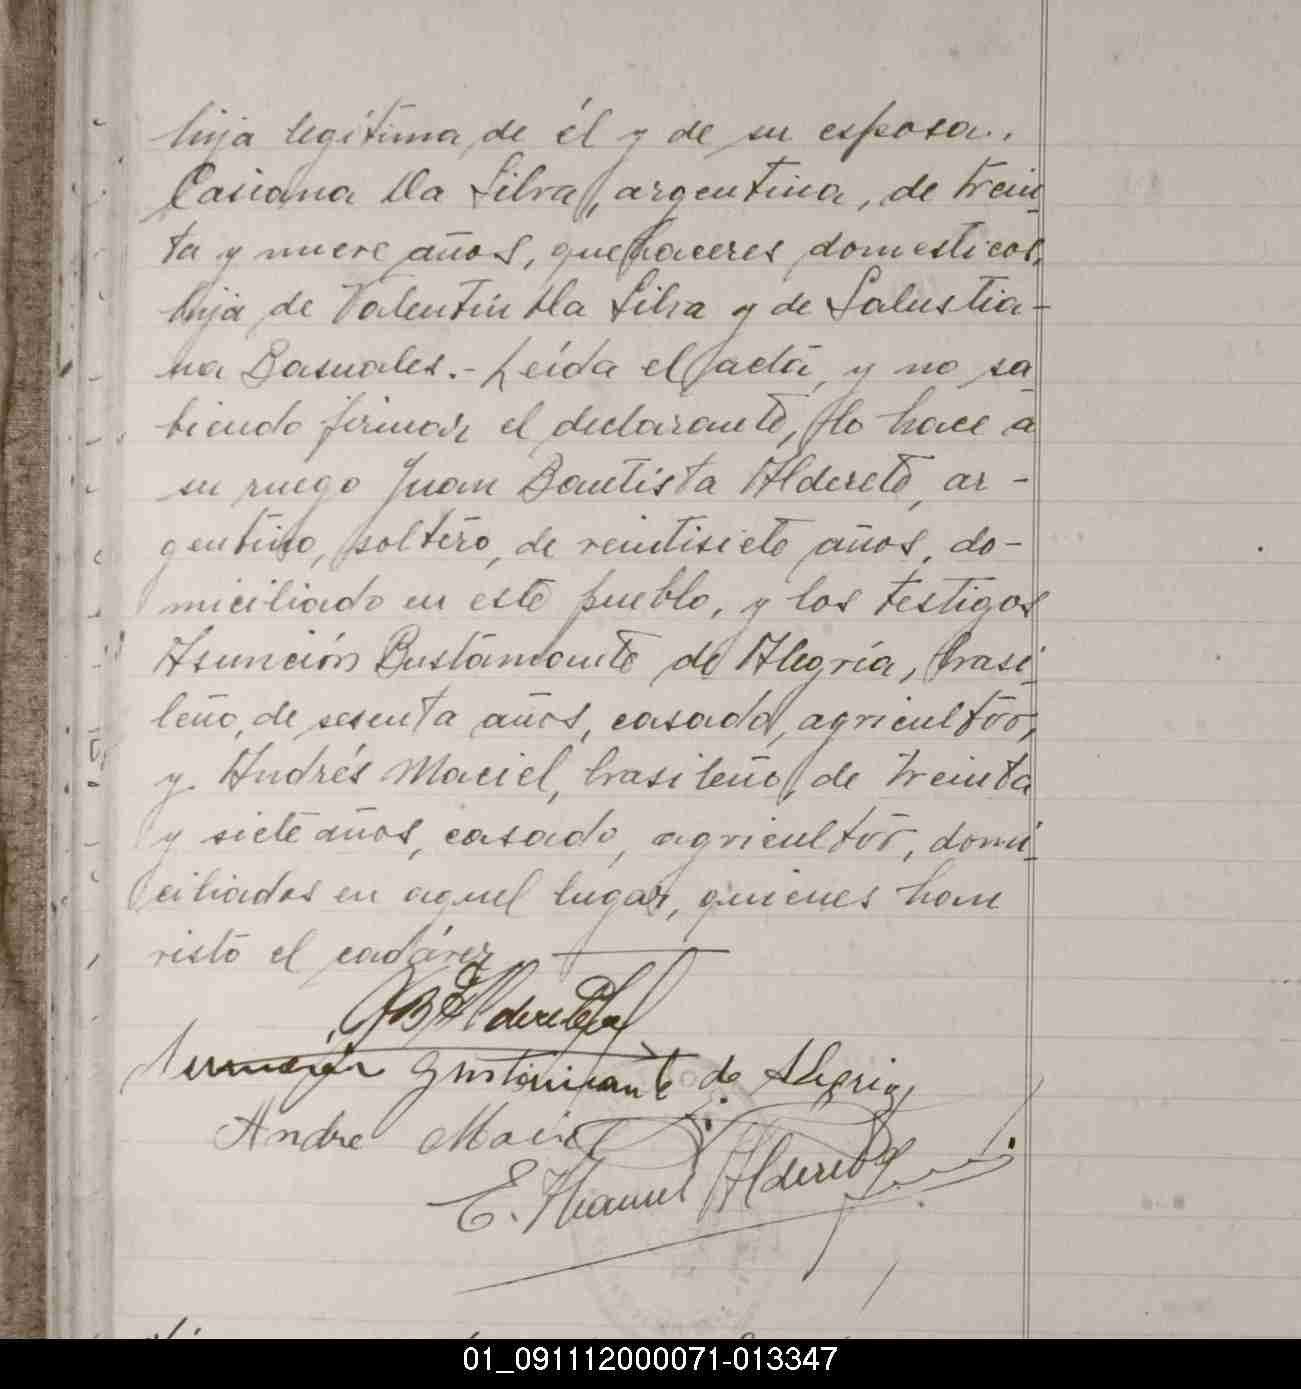 hija legítima de él y de su esposa,
Casiana Da Silva, argentina, de trein
ta y nueve años, quehaceres domesticos,
hija de Valentín Da Silva y de Salustia-
na Basuales.- Leída el acta, y no sa
biendo firmar el declarante, lo hace a
su ruego Juan Bautista Alderete, ar-
gentino, soltero, de veintisiete años, do-
miciliado en este pueblo, y los testigos
Asunción Bustamante de Alegría, brasi
leño, de sesenta años, casado, agricultor,
y Andrés Maciel, brasileño, de treinta
y siete años, casado, agricultor, domi
ciliados en aquel lugar, quienes han
visto el cadáver
JB Alderete
de Alegria
Andre Maciel
E. Manuel Alderete
01_091112000071-013347